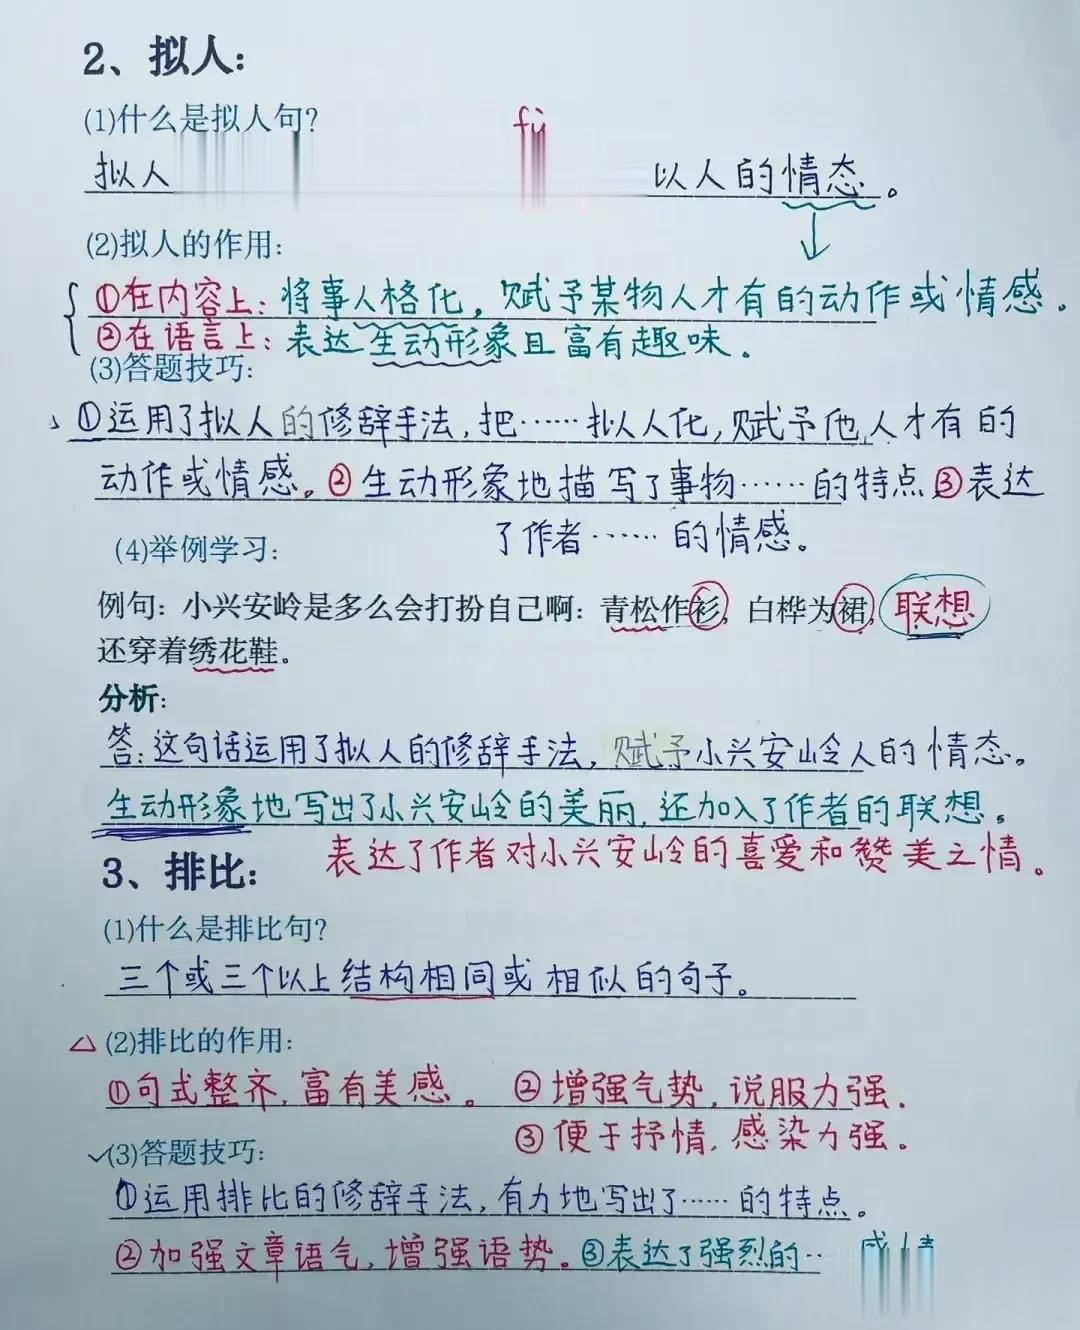 2、拟人:
(1)什么是拟人句?
fù
拟人 以人的情态。
(2)拟人的作用:
①在内容上:将事人格化,赋予某物人才有的动作或情感。
②在语言上:表达生动形象且富有趣味.
(3)答题技巧:
①运用了拟人的修辞手法,把……拟人人化,赋予他人才有的
动作或情感。②生动形象地描写了事物……的特点③表达
了作者……的情感。
(4)举例学习:
例句:小兴安岭是多么会打扮自己啊:青松作衫,白桦为裙, 联想
还穿着绣花鞋。
分析:
答:这句话运用了拟人的修辞手法,赋予小兴安岭人的情态。
生动形象地写出了小兴安岭的美丽,还加入了作者的联想。
表达了作者对小兴安岭的喜爱和赞美之情。
3、排比:
(1)什么是排比句?
三个或三个以上结构相同或相似的句子。
(2)排比的作用:
①句式整齐,富有美感。 ②增强气势,说服力强.
③便于抒情,感染力强.
(3)答题技巧:
①运用排比的修辞手法,有力地写出了……的特点。
②加强文章语气,增强语势。③表达了强烈的…